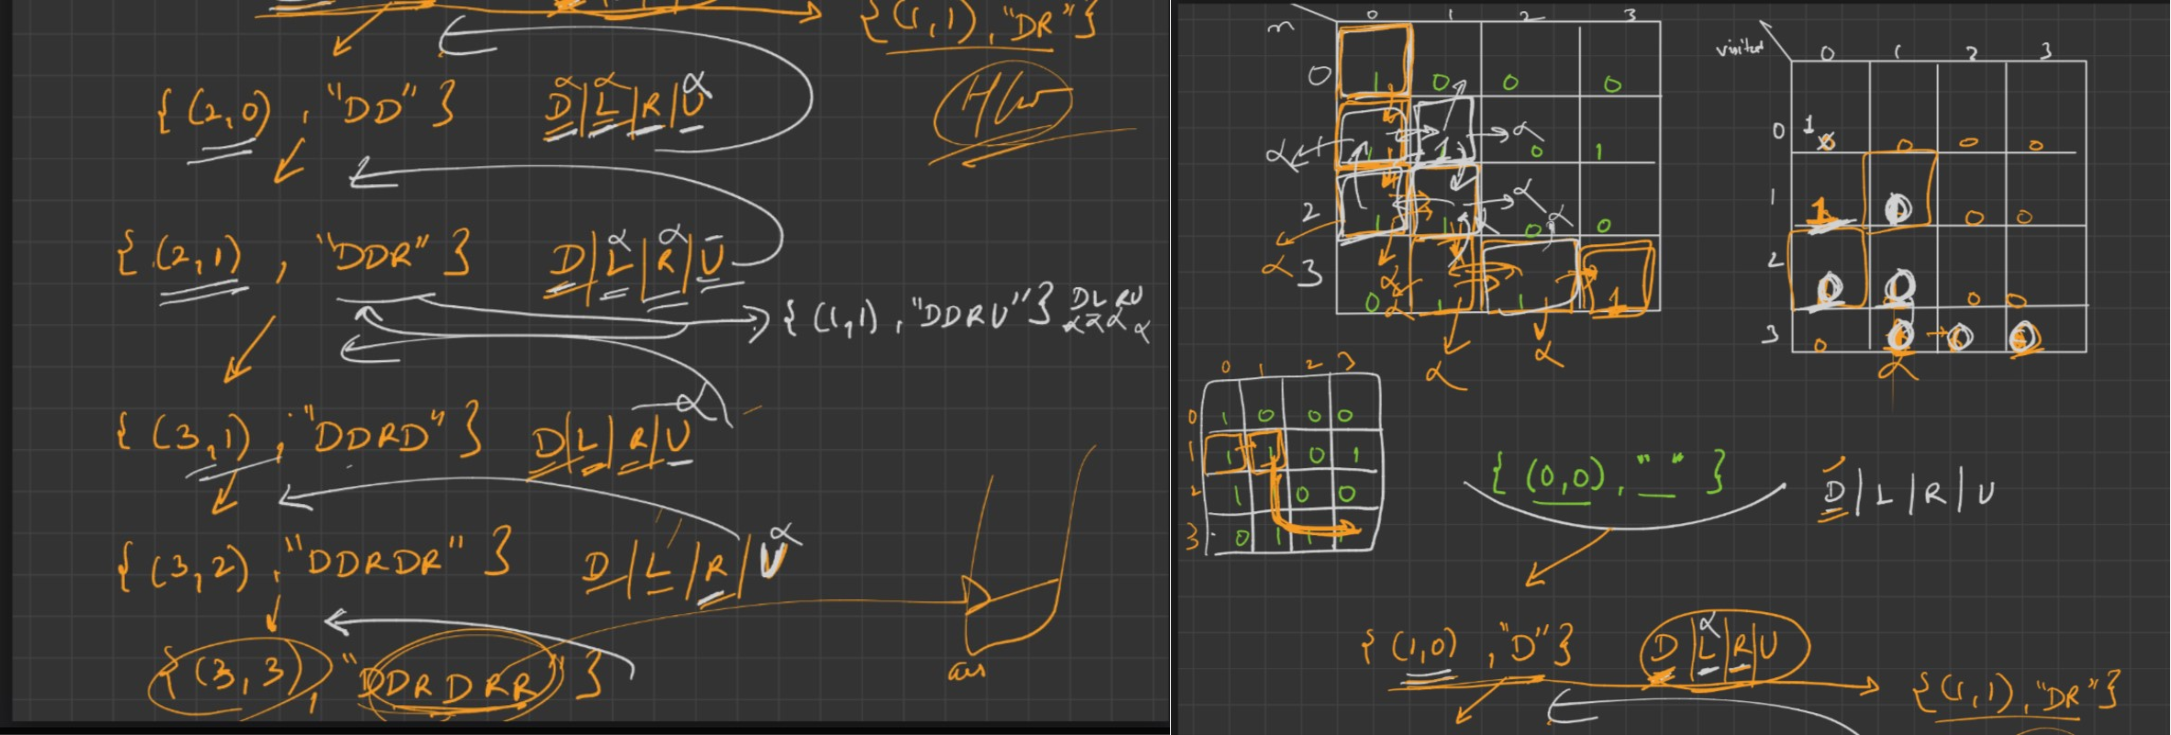 {(1,1), "DR"}
{(2,0), "DD"} D|L|R|U
H/W
{(2,1), "DDR"} D|L|R|U
{(1,1), "DDRU"} DLRU
{(3,1), "DDRD"} D|L|R|U
{(3,2), "DDRDR"} D|L|R|U
{(3,3), "DDRDRR"}
ans
m 0 1 2 3
0 1 0 0 0
1 1 0 1
2 1 1 0 0
3 0 1 1 1
visited 0 1 2 3
0 1 0 0 0
1 1 0 0 0
2 0 0 0 0
3 0 0 0 0
0 1 2 3
0 1 0 0 0
1 1 1 0 1
2 1 0 0
3 0 1 1
{(0,0), " "} D|L|R|U
{(1,0), "D"} D|L|R|U
{(1,1), "DR"}